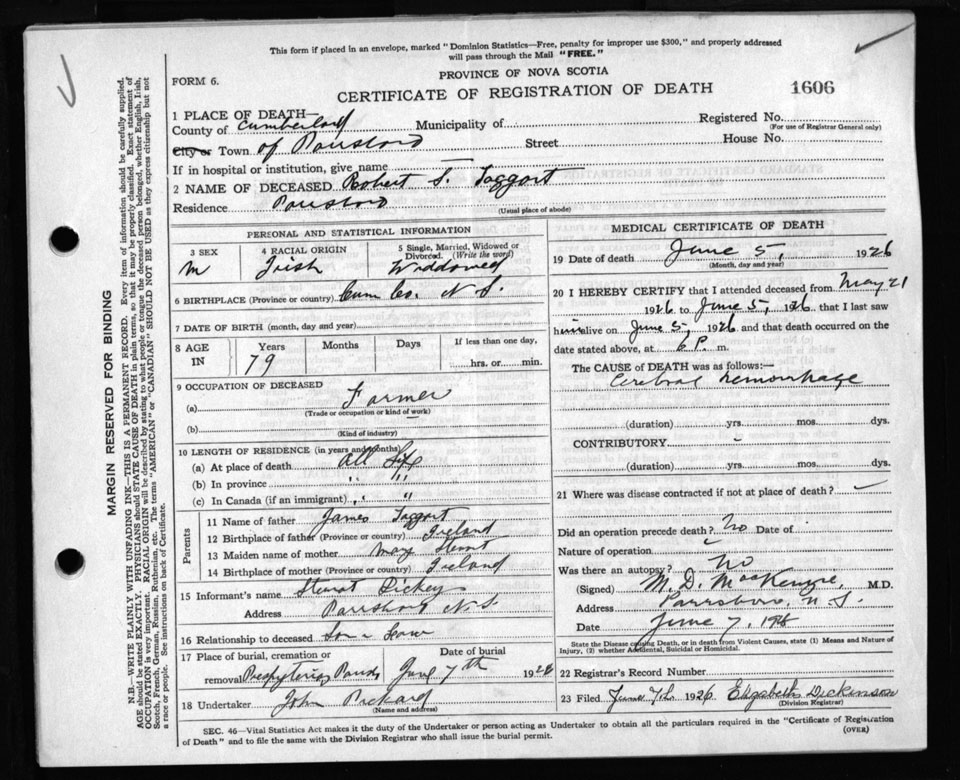 This form if placed in an envelope, marked "Dominion Statistics—Free, penalty for improper use $300," and properly addressed
will pass through the Mail "FREE."
FORM 6.
PROVINCE OF NOVA SCOTIA
CERTIFICATE OF REGISTRATION OF DEATH
1606
1 PLACE OF DEATH—
County of Cumberland Municipality of
Registered No.
(For use of Registrar General only)
City or Town of Parrsboro Street House No.
If in hospital or institution, give name —
2 NAME OF DECEASED Robert S. Taggart
Residence Parrsboro
(Usual place of abode)
PERSONAL AND STATISTICAL INFORMATION
3 SEX
M
4 RACIAL ORIGIN
Irish
5 Single, Married, Widowed or
Divorced. (Write the word)
Widdowed
6 BIRTHPLACE (Province or country) Cum Co. N S.
7 DATE OF BIRTH (month, day and year)
8 AGE
IN
Years
79
Months
Days
If less than one day,
hrs. or min.
9 OCCUPATION OF DECEASED
(a) Farmer
(Trade or occupation or kind of work)
(b)
(Kind of industry)
10 LENGTH OF RESIDENCE (in years and months)
(a) At place of death All Life
(b) In province " "
(c) In Canada (if an immigrant) " "
Parents
11 Name of father James Taggart
12 Birthplace of father (Province or country) Ireland
13 Maiden name of mother Mary
14 Birthplace of mother (Province or country) Ireland
15 Informant's name Stewart Dickey
Address Parrsboro N.S.
16 Relationship to deceased Son in Law
17 Place of burial, cremation or
removal Presbyterian
Date of burial
June 7th 1926
18 Undertaker John Pickard
(Name and address)
MEDICAL CERTIFICATE OF DEATH
19 Date of death June 5, 1926
(Month, day and year)
20 I HEREBY CERTIFY that I attended deceased from May 21
1926 to June 5, 1926 that I last saw
him alive on June 5, 1926 and that death occurred on the
date stated above, at 6 P. m.
The CAUSE of DEATH was as follows:—
Cerebral hemorrhage
(duration) yrs. mos. dys.
CONTRIBUTORY
(duration) yrs. mos. dys.
21 Where was disease contracted if not at place of death?
Did an operation precede death? No Date of
Nature of operation
Was there an autopsy? No
(Signed) M. D. MacKenzie, M.D.
Address Parrsboro, N.S.
Date June 7, 1926
State the Disease causing Death, or in death from Violent Causes, state (1) Means and Nature of
Injury, (2) whether Accidental, Suicidal or Homicidal.
22 Registrar's Record Number
23 Filed June 7th 1926 Elizabeth Dickinson
(Division Registrar)
SEC. 46—Vital Statistics Act makes it the duty of the Undertaker or person acting as Undertaker to obtain all the particulars required in the "Certificate of Registration
of Death" and to file the same with the Division Registrar who shall issue the burial permit.
(OVER)
MARGIN RESERVED FOR BINDING
N.B.—WRITE PLAINLY WITH UNFADING INK—THIS IS A PERMANENT RECORD. Every item of information should be carefully supplied.
AGE should be stated EXACTLY. PHYSICIANS should STATE CAUSE OF DEATH in plain terms, so that it may be properly classified. Exact statement of
OCCUPATION is very important. RACIAL ORIGIN will be described by stating to what people or tongue the deceased person belonged, whether English, Irish,
Scotch, French, German, Russian, Ruthenian, etc. The terms "AMERICAN" or "CANADIAN" SHOULD NOT BE USED as they express citizenship but not
a race or people. See instructions on back of Certificate.